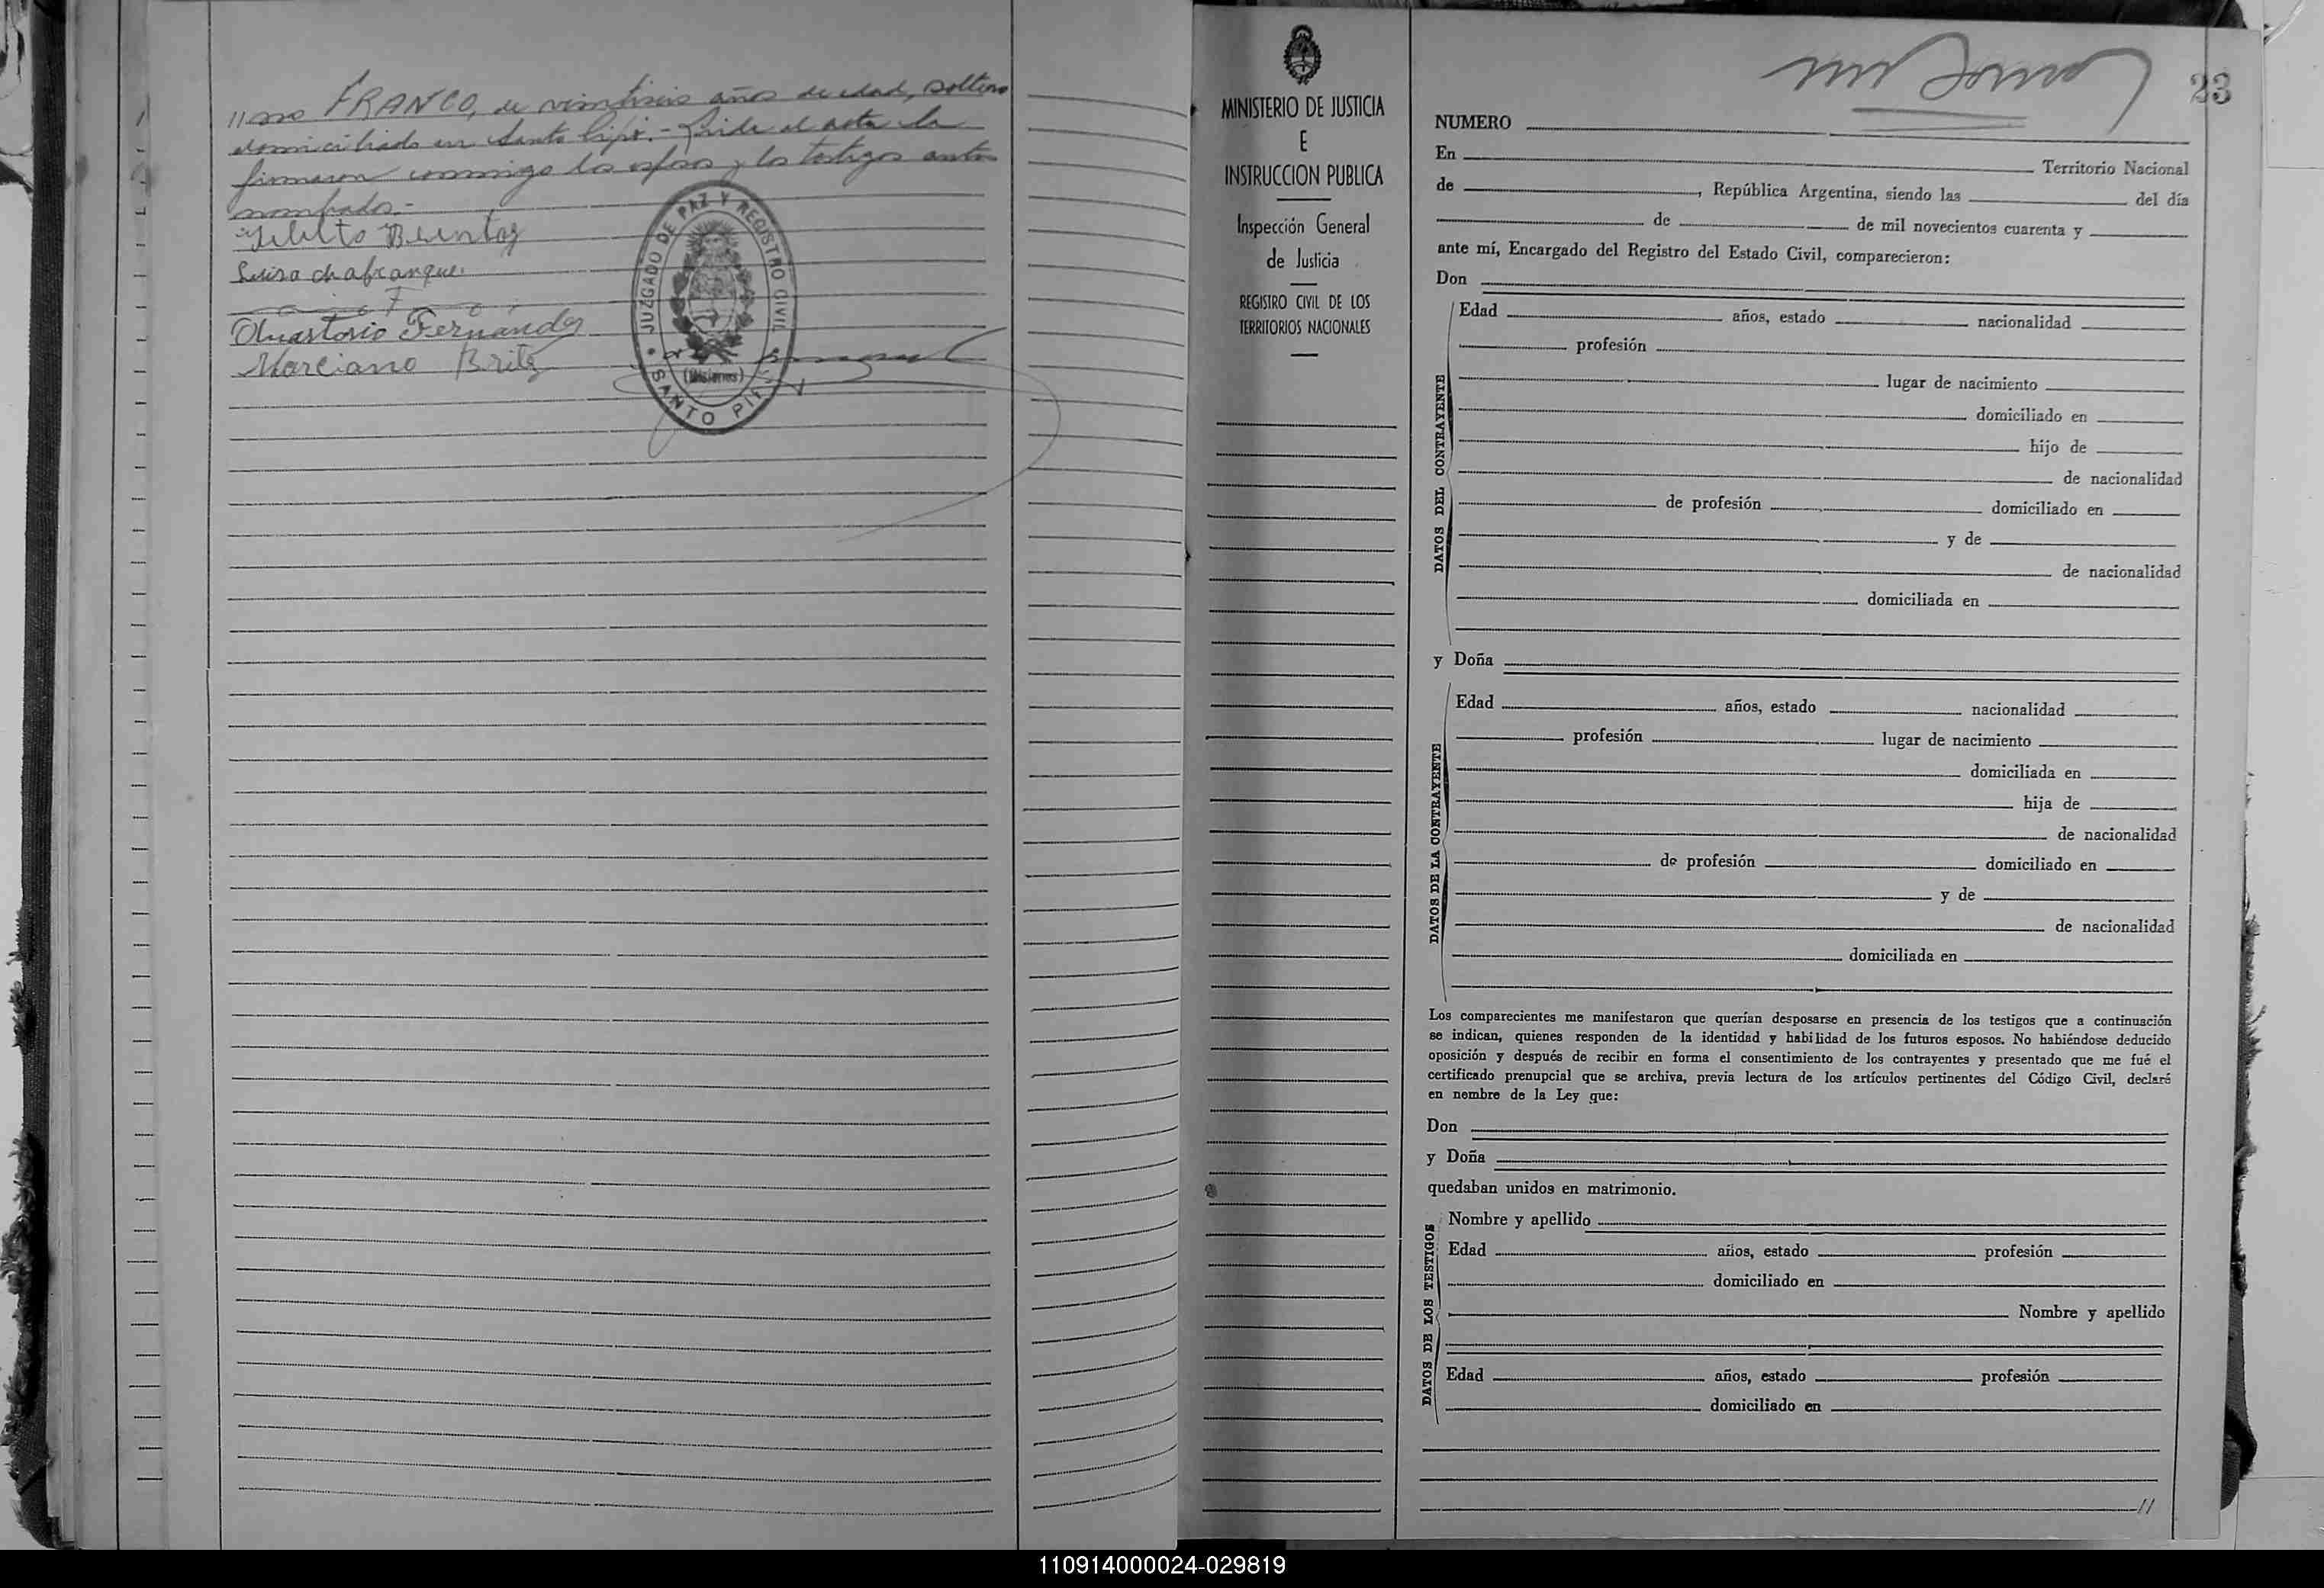 FRANCO, de veintiseis años de edad, soltero
domiciliado en Santo Pipó.- Leida el acta la
firmaron conmigo los esposos y los testigos antes
nombrados.-
Luisa chafranque.
Fernandez
Marciano Britez
JUZGADO DE PAZ Y REGISTRO CIVIL
(Misiones)
SANTO PIPÓ
23
MINISTERIO DE JUSTICIA
E
INSTRUCCION PUBLICA
Inspección General
de Justicia
REGISTRO CIVIL DE LOS
TERRITORIOS NACIONALES
NUMERO
En Territorio Nacional
de , República Argentina, siendo las del día
de de mil novecientos cuarenta y
ante mí, Encargado del Registro del Estado Civil, comparecieron:
Don
DATOS DEL CONTRAYENTE
Edad años, estado nacionalidad
profesión
lugar de nacimiento
domiciliado en
hijo de
de nacionalidad
de profesión domiciliado en
y de
de nacionalidad
domiciliada en
y Doña
DATOS DE LA CONTRAYENTE
Edad años, estado nacionalidad
profesión lugar de nacimiento
domiciliada en
hija de
de nacionalidad
de profesión domiciliado en
y de
de nacionalidad
domiciliada en
Los comparecientes me manifestaron que querían desposarse en presencia de los testigos que a continuación
se indican, quienes responden de la identidad y habilidad de los futuros esposos. No habiéndose deducido
oposición y después de recibir en forma el consentimiento de los contrayentes y presentado que me fué el
certificado prenupcial que se archiva, previa lectura de los artículos pertinentes del Código Civil, declaré
en nombre de la Ley que:
Don
y Doña
quedaban unidos en matrimonio.
DATOS DE LOS TESTIGOS
Nombre y apellido
Edad años, estado profesión
domiciliado en
Nombre y apellido
Edad años, estado profesión
domiciliado en
//
110914000024-029819